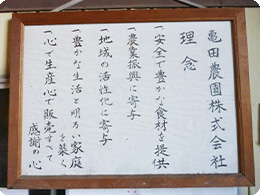 亀田農園株式会社
理念
一安全で豊かな食材を提供
一農業振興に寄与
一地域の活性化に寄与
一豊かな生活と明るい家庭
を築く
一心で生産心で販売すべて
感謝の心